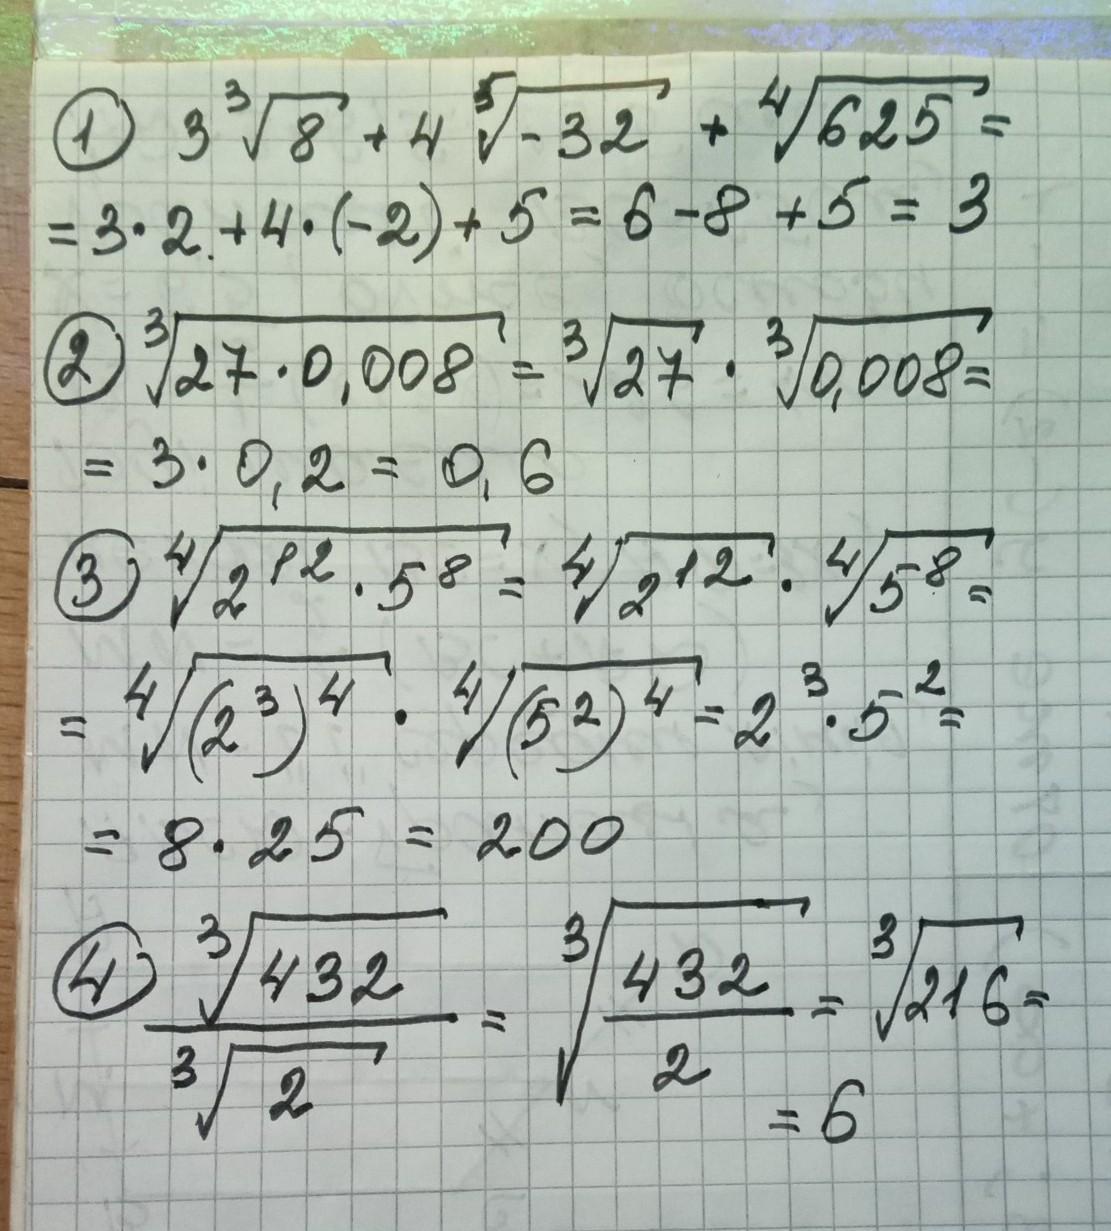 ① 3∛8 + 4⁵√-32 + ⁴√625 =
= 3·2 + 4·(-2) + 5 = 6 - 8 + 5 = 3
② ³√27·0,008 = ³√27 · ³√0,008 =
= 3·0,2 = 0,6
③ ⁴√2¹²·5⁸ = ⁴√2¹² · ⁴√5⁸ =
= ⁴√(2³)⁴ · ⁴√(5²)⁴ = 2³·5² =
= 8·25 = 200
④ ³√432 / ³√2 = ³√432/2 = ³√216 =
= 6